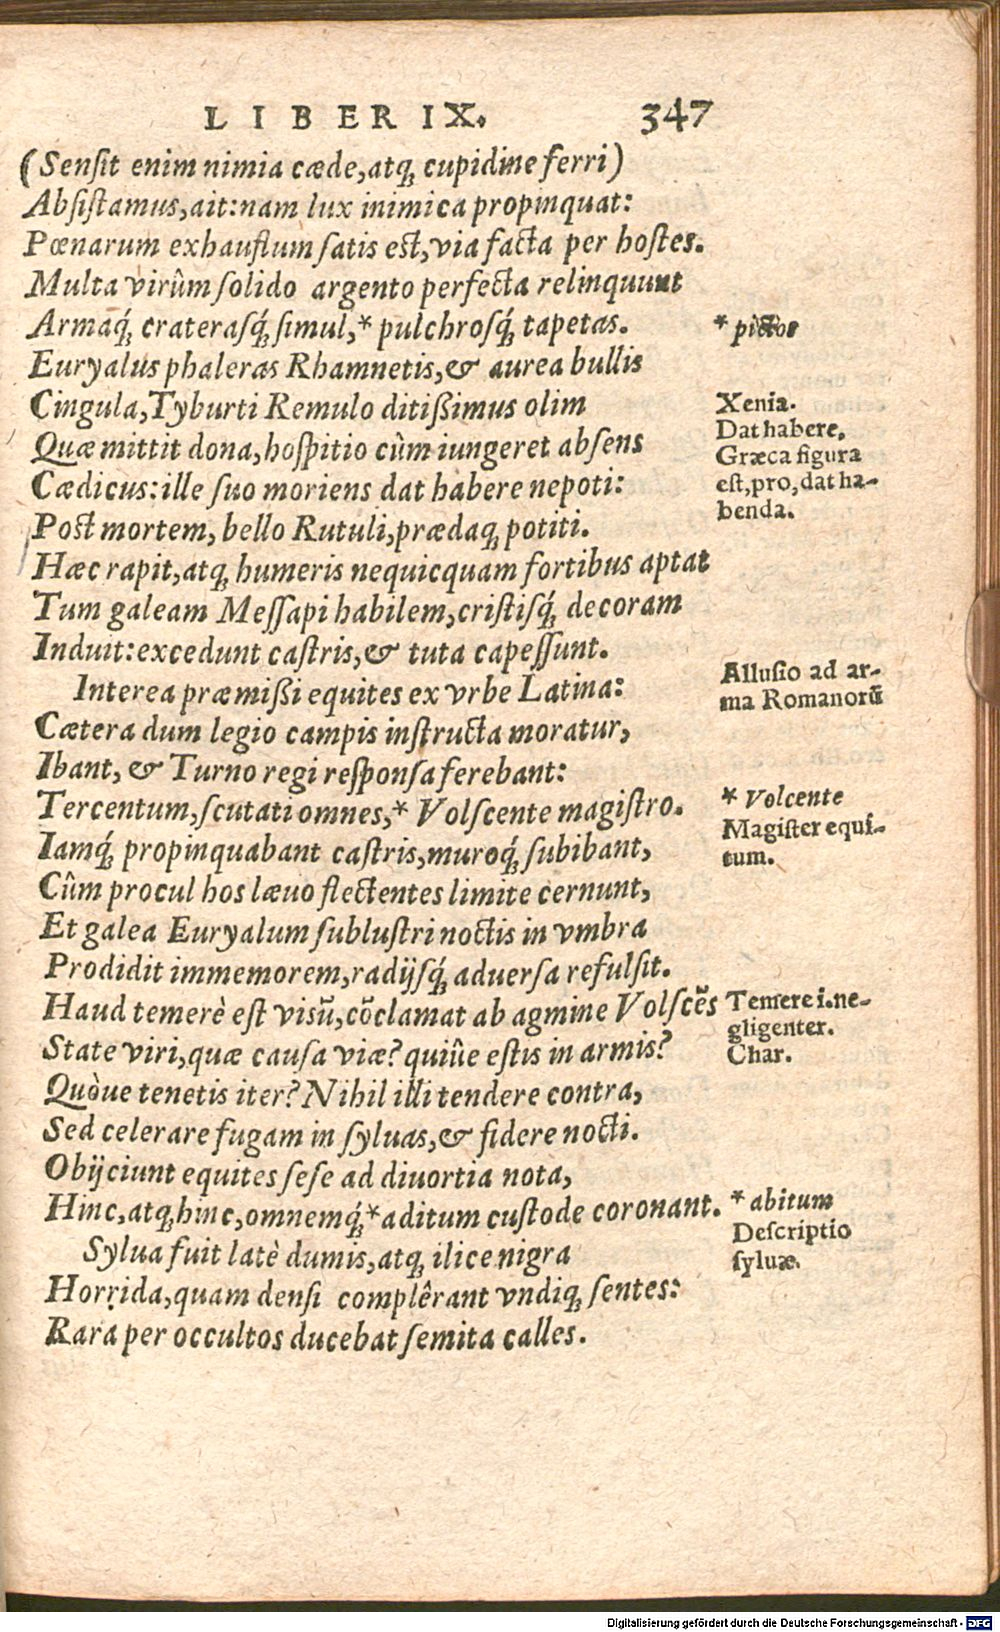 LIBER IX. 347
(Senſit enim nimia cæde,atq́; cupidine ferri)
Abſiſtamus,ait:nam lux inimica propinquat:
Pœnarum exhauſtum ſatis eſt,via facta per hoſtes.
Multa virûm ſolido argento perfecta relinquunt
Armaq́; crateraſq́; ſimul,* pulchroſq́; tapetas.
* pictos
Euryalus phaleras Rhamnetis,& aurea bullis
Cingula,Tyburti Remulo ditißimus olim
Xenia.
Quæ mittit dona,hoſpitio cùm iungeret abſens
Dat habere,
Græca figura
Cædicus:ille ſuo moriens dat habere nepoti:
eſt,pro,dat ha-
benda.
Poſt mortem, bello Rutuli,prædaq; potiti.
Hæc rapit,atq; humeris nequicquam fortibus aptat
Tum galeam Meſſapi habilem,criſtiſq́; decoram
Induit:excedunt caſtris,& tuta capeſſunt.
Interea præmißi equites ex vrbe Latina:
Alluſio ad ar-
ma Romanorū
Cætera dum legio campis inſtructa moratur,
Ibant, & Turno regi reſponſa ferebant:
Tercentum,ſcutati omnes,* Volſcente magiſtro.
* Volcente
Magiſter equi-
tum.
Iamq́; propinquabant caſtris,muroq́; ſubibant,
Cûm procul hos læuo flectentes limite cernunt,
Et galea Euryalum ſubluſtri noctis in vmbra
Prodidit immemorem,radijſq́; aduerſa refulſit.
Haud temerè eſt viſū,cōclamat ab agmine Volſcēs
Temere i.ne-
gligenter.
Char.
State viri,quæ cauſa viæ? quiûe eſtis in armis?
Quòue tenetis iter? Nihil illi tendere contra,
Sed celerare fugam in ſyluas,& fidere nocti.
Obijciunt equites ſeſe ad diuortia nota,
Hinc,atq; hinc,omnemq́;* aditum cuſtode coronant.
* abitum
Deſcriptio
ſyluæ.
Sylua fuit latè dumis,atq; ilice nigra
Horrida,quam denſi complêrant vndiq; ſentes:
Rara per occultos ducebat ſemita calles.
Digitalisierung gefördert durch die Deutsche Forschungsgemeinschaft - DFG